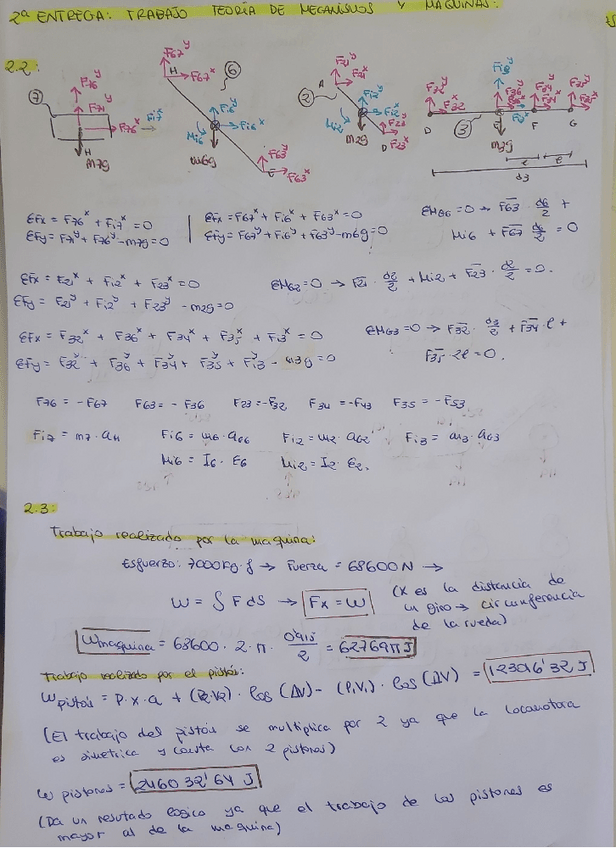 2ª ENTREGA: TRABAJO TEORÍA DE MECANISMOS Y MAQUINAS:
2.2:
7 F76y F71y F76x Fi7x H m7g
F67y H F67x 6 Fi6y Fi6x Mi6 m6g F63y F63x
2 A F21y F21x Fi2y Fi2x Mi2 F23y F23x D m2g
F32y F32x D 3 m3g F G d3
ΣFx = F76x + Fi7x = 0
ΣFy = F71y + F76y - m7g = 0
ΣFx = F67x + Fi6x + F63x = 0
ΣFy = F67y + Fi6y + F63y - m6g = 0
ΣMG6 = 0 → F63 · d6/2 +
Mi6 + F67 d6/2 = 0
ΣFx = F21x + Fi2x + F23x = 0
ΣFy = F21y + Fi2y + F23y - m2g = 0
ΣMG2 = 0 → F21 · d2/2 + Mi2 + F23 · d2/2 = 0.
ΣFx = F32x + F36x + F34x + F35x + Fi3x = 0
ΣFy = F32y + F36y + F34y + F35y + Fi3y - m3g = 0
ΣMG3 = 0 → F32 · d3/2 + F34 · l +
F35 · 2l = 0.
F76 = -F67 F63 = -F36 F23 = -F32 F34 = -F43 F35 = -F53
Fi7 = m7 · aH Fi6 = m6 · aG6 Fi2 = m2 · aG2 Fi3 = m3 · aG3
Mi6 = I6 · E6 Mi2 = I2 · E2.
2.3:
Trabajo realizado por la maquina:
Esfuerzo: 7000kg·f → Fuerza = 68600 N →
W = ∫ F dS → Fx = W (x es la distancia de
un giro → circunferencia
de la rueda)
Wmaquina = 68600 · 2 · π · 0'915/2 = 62769π J
Trabajo realizado por el pistón:
Wpistón = P · x · a + (P2·V2) · log (ΔV) - (P1V1) · log (ΔV) = 123016'32 J
(El trabajo del pistón se multiplica por 2 ya que la locomotora
es simetrica y consta con 2 pistones)
W pistones = 246032'64 J
(Da un resultado logico ya que el trabajo de los pistones es
mayor al de la maquina)